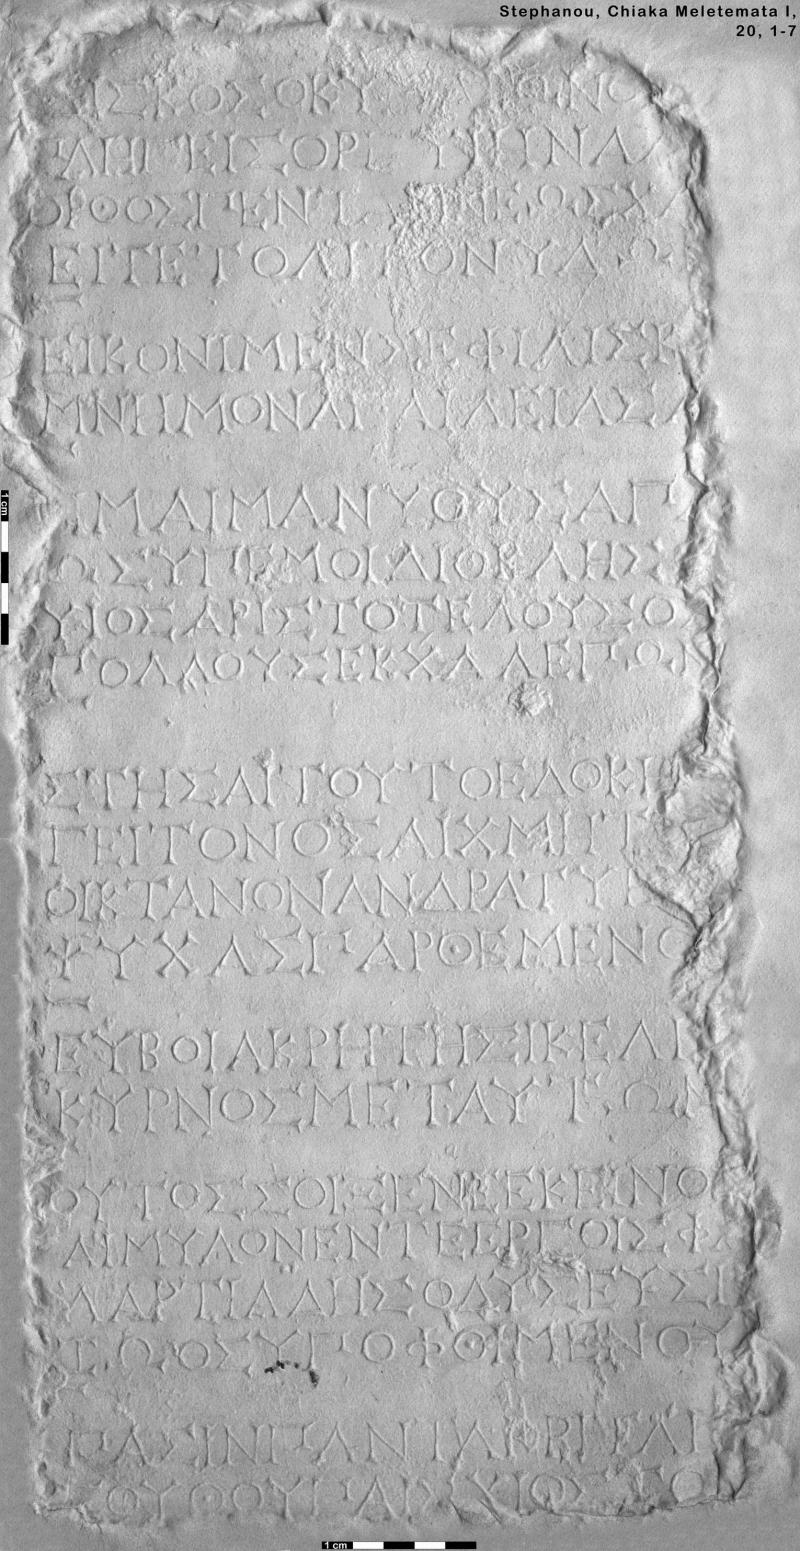 Stephanou, Chiaka Meletemata I,
20, 1-7
ΙΣΚΟΣΟΚΥ
ΠΛΗΓΕΙΣΟΡ ΗΝΑΛ
ΟΡΘΟΣΓΕΝ ΝΕΩΣΧΑ
ΕΙΠΕΠΟΛΙΤΟΝΥΔΩ
ΕΙΚΟΝΙΜΕΝΣΕΦΙΛΙΣΚ
ΜΝΗΜΟΝΑΠΑΙΔΕΙΑΣΙ
ΕΙΜΑΙΜΑΝΥΟΥΣΑΠ
ΩΣΥΠΕΜΟΙΔΙΟΚΛΗΣ
ΥΙΟΣΑΡΙΣΤΟΤΕΛΟΥΣΟ
ΠΟΛΛΟΥΣΕΚΧΑΛΕΠΩΝ
ΣΤΗΣΑΙΤΟΥΤΟΕΔΟΚΗ
ΓΕΙΤΟΝΟΣΑΙΧΜΗΤ
ΟΙΚΤΑΝΟΝΑΝΔΡΑΓΥ
ΨΥΧΑΣΠΑΡΘΕΜΕΝΟ
ΕΥΒΟΙΑΚΡΗΤΗΣΙΚΕΛΙ
ΚΥΡΝΟΣΜΕΤΑΥΤΩΝ
ΟΥΤΟΣΣΟΙΞΕΝΕΕΚΕΙΝΟ
ΑΙΜΥΛΟΝΕΝΤΕΕΡΓΟΙΣΦ
ΛΑΡΤΙΑΔΗΣΟΔΥΣΕΥΣΙ
ΤΩΟΣΥΠΟΦΘΙΜΕΝΟΥ
ΠΑΣΙΝΠΑΝ
ΟΥΘΟΥΠΑΙΣΧΙΟΣ